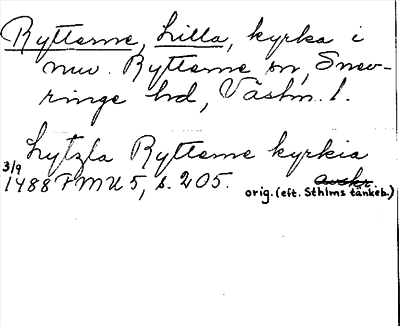 Rytterne, Lilla, kyrka i
nuv. Rytterne sn, Snev-
ringe hd, Västm. l.
Lytzla Rytterne kyrkia
3/9
1488 FMU 5, s. 205. Avskr.
orig. (eft. Sthlms tänkeb.)